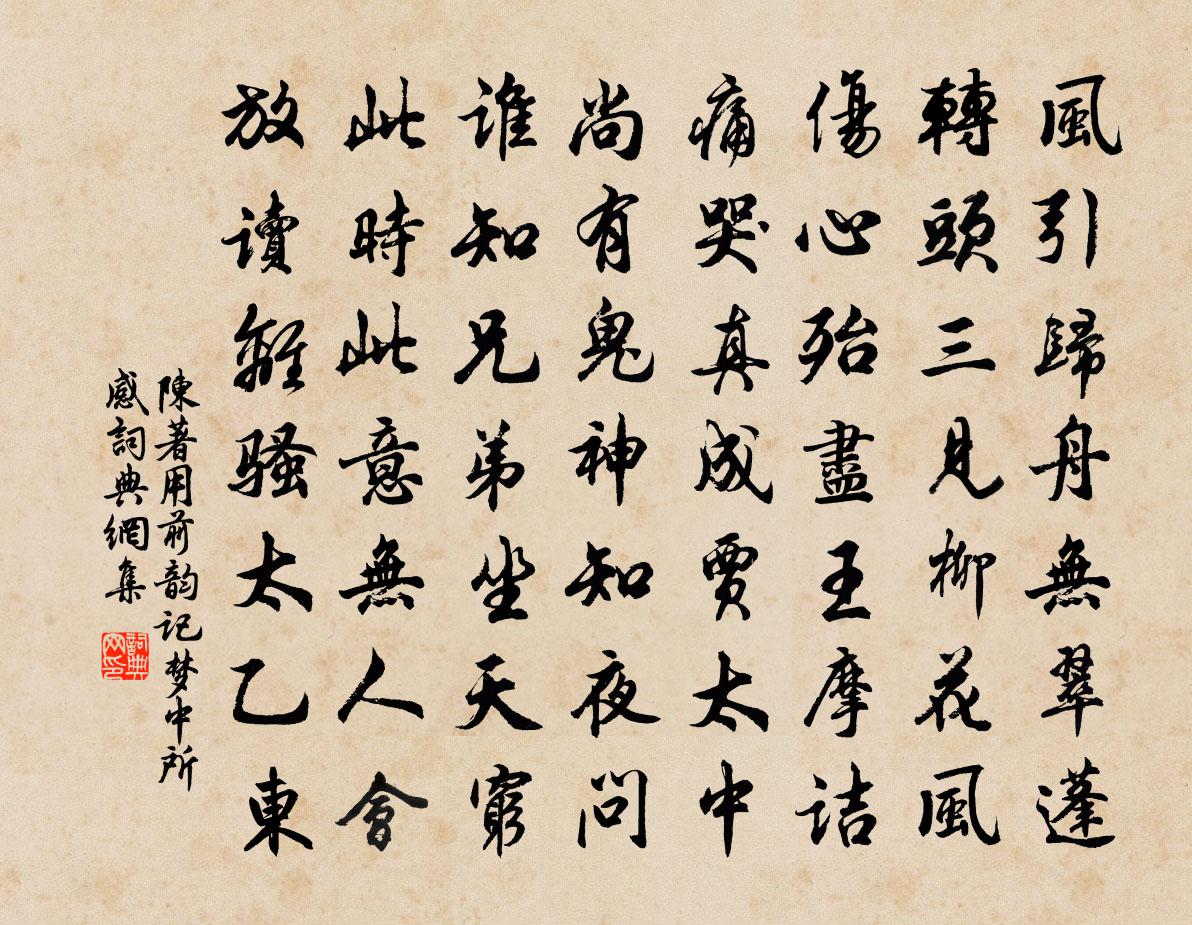 風引歸舟無翠蓬
轉頭三見柳花風
傷心殆盡王摩詰
痛哭真成賈太中
尚有鬼神知夜問
誰知兄弟坐天窮
此時此意無人會
放讀離騷太乙東
陳著用前韵记梦中所
感詞典網集
詞典网印